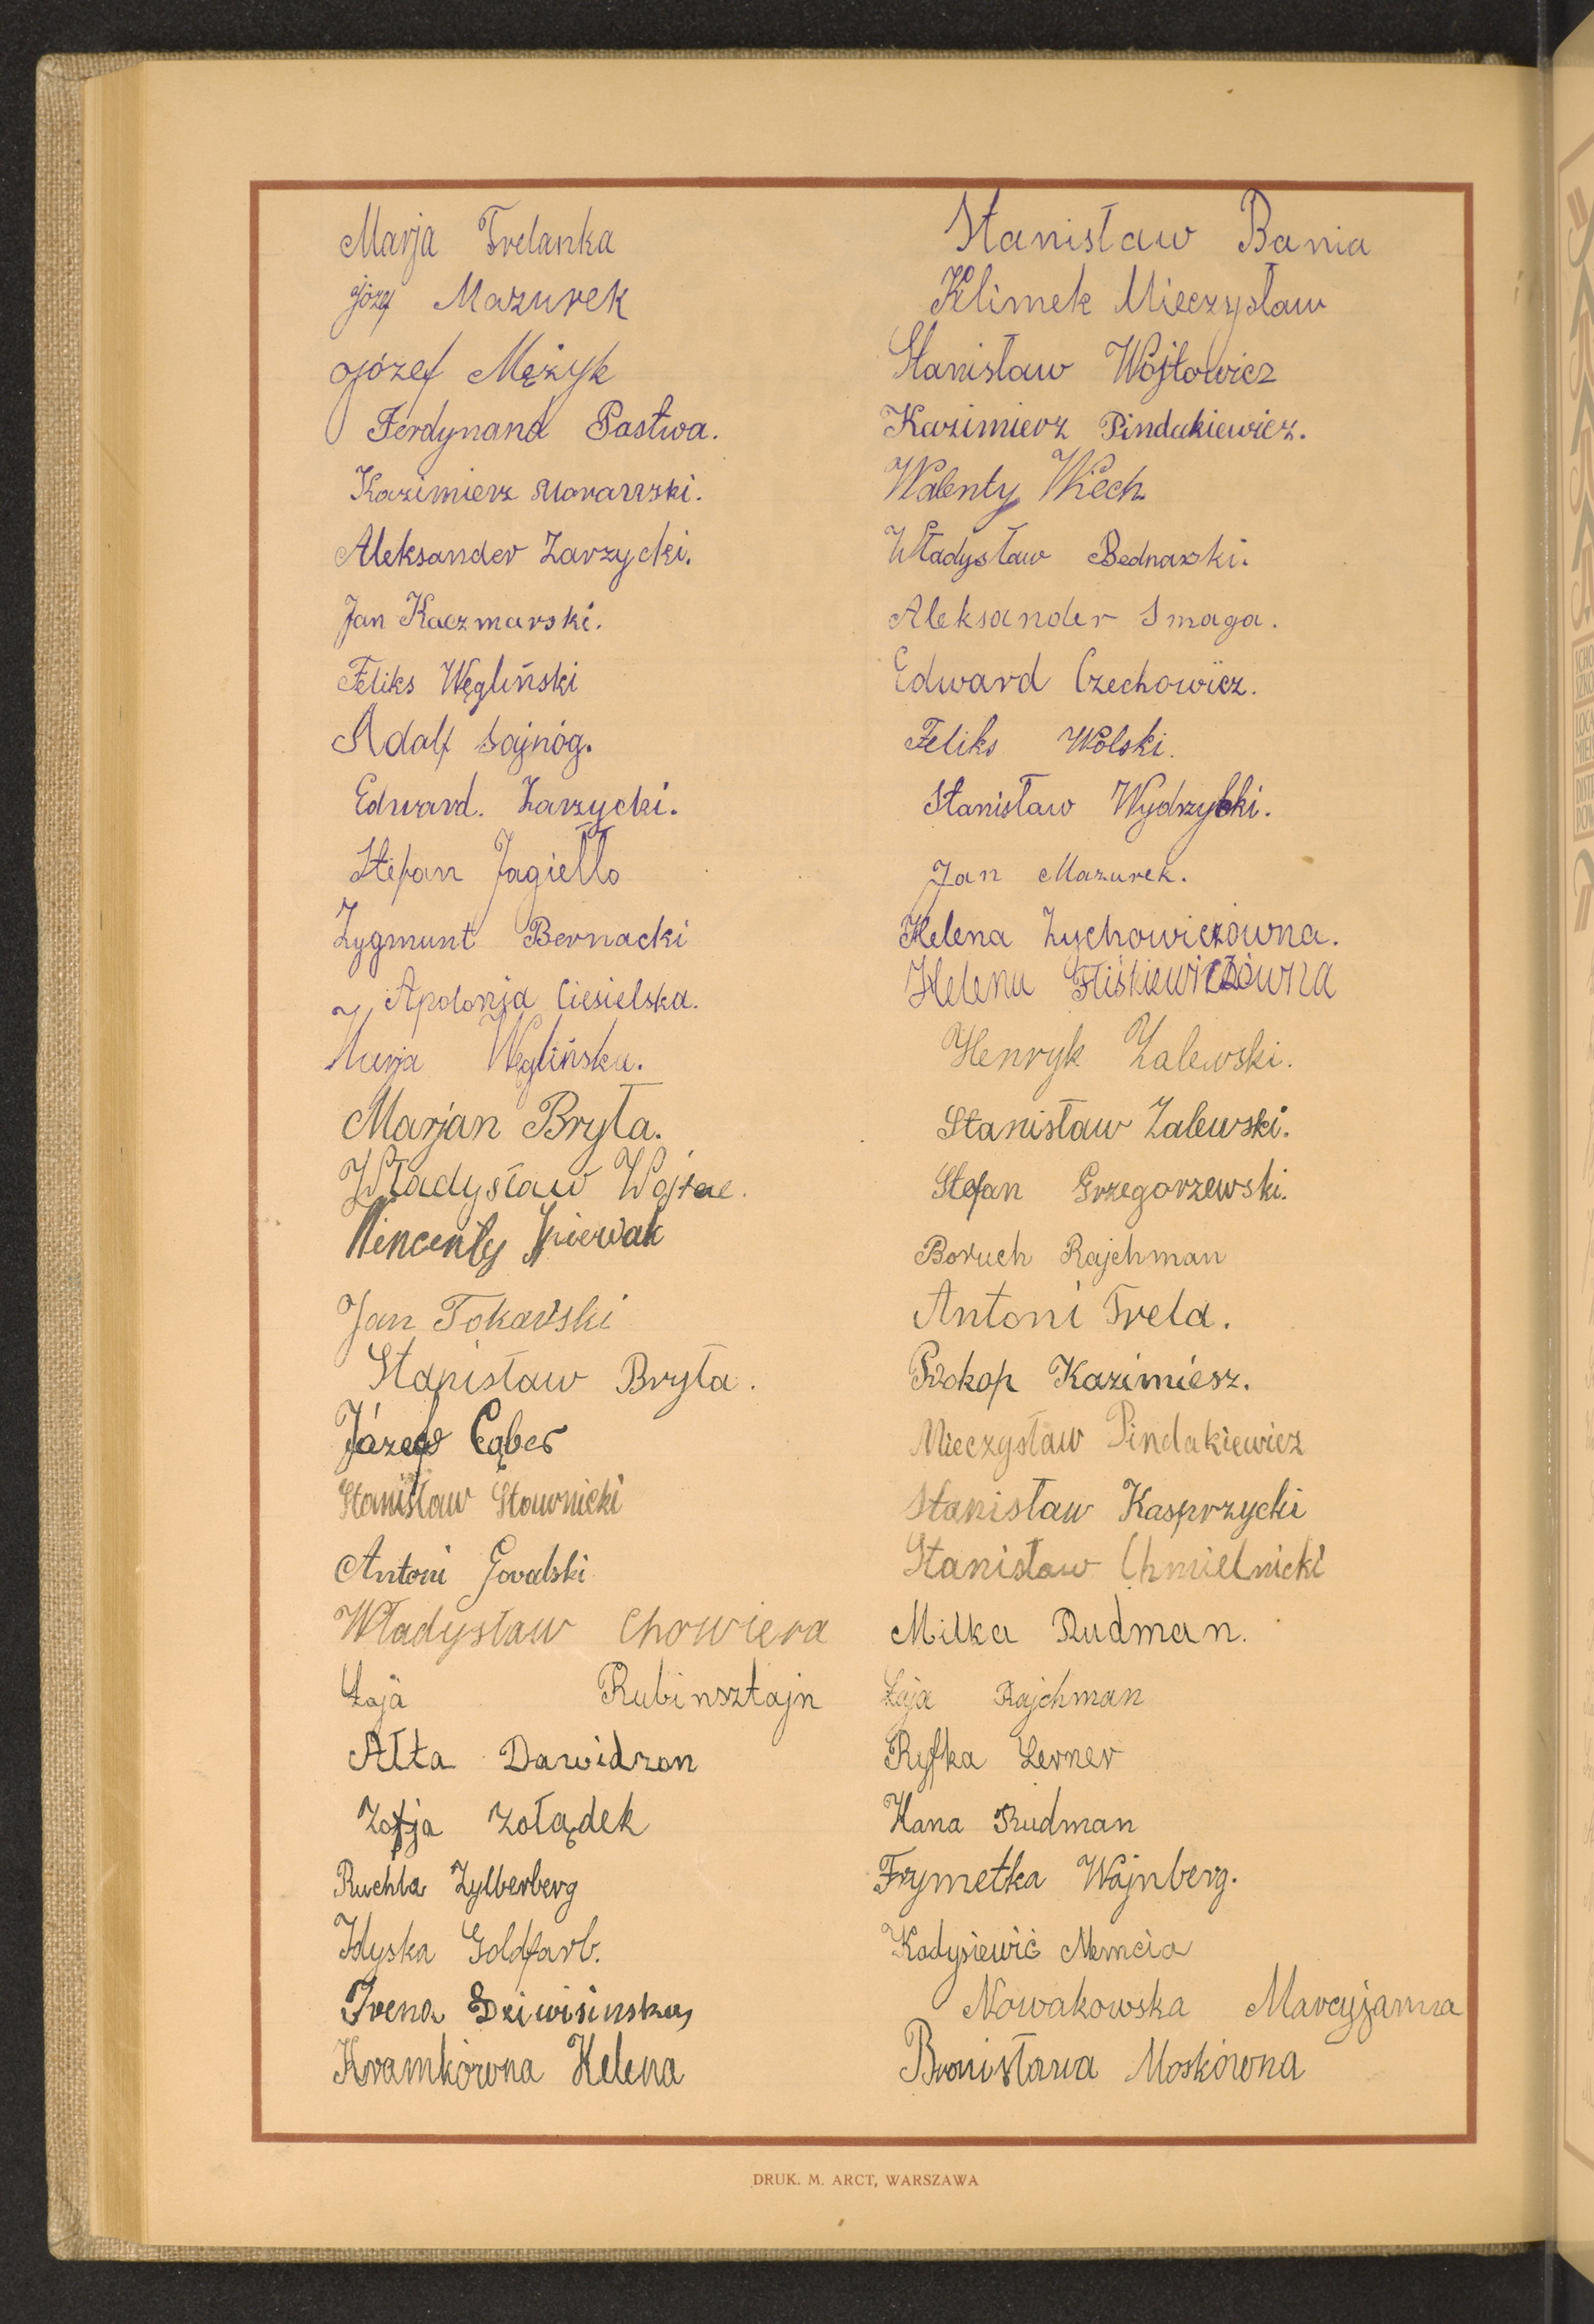 Marja Trelanka
Józef Mazurek
Józef Mężyk
Ferdynand Pastwa.
Kazimierz Morawski.
Aleksander Zarzycki.
Jan Kaczmarski.
Feliks Węgliński
Adolf Sajnóg.
Edward. Zarzycki.
Stefan Jagiełło
Zygmunt Bernacki
Apolonja Ciesielska.
Marja Węglińska.
Marjan Bryła.
Władysław
Wincenty Śpiewak
Jan Tokarski
Stanisław Bryła.
Józef
Stanisław Sławnicki
Antoni Góralski
Władysław Chowiera
Łaja Rubinsztajn
Ałta Dawidzon
Zofja Żołądek
Ruchla Zylberberg
Hyska Goldfarb.
Irena
Kramkówna Helena
Stanisław Bania
Klimek Mieczysław
Stanisław Wójtowicz
Kazimierz Pindakiewicz.
Walenty Wiech.
Władysław Bednarski.
Aleksander Smaga.
Edward Czechowicz.
Feliks Wolski.
Stanisław Wydrzycki.
Jan Mazurek.
Helena Zychowiczówna.
Helena Fliśkiewiczówna
Henryk Zalewski.
Stanisław Zalewski.
Stefan Grzegorzewski.
Boruch Rajchman
Antoni Trela.
Prokop Kazimiesz.
Mieczysław Pindakiewicz
Stanisław Kasprzycki
Stanisław Chmielnicki
Miłka Rudman.
Łaja Rajchman
Ryfka Lerner
Hana Rudman
Frymetka Wajnberg.
Kadysiewić Nemcia
Nowakowska Marcyjanna
Bronisława Moskówna
DRUK. M. ARCT, WARSZAWA